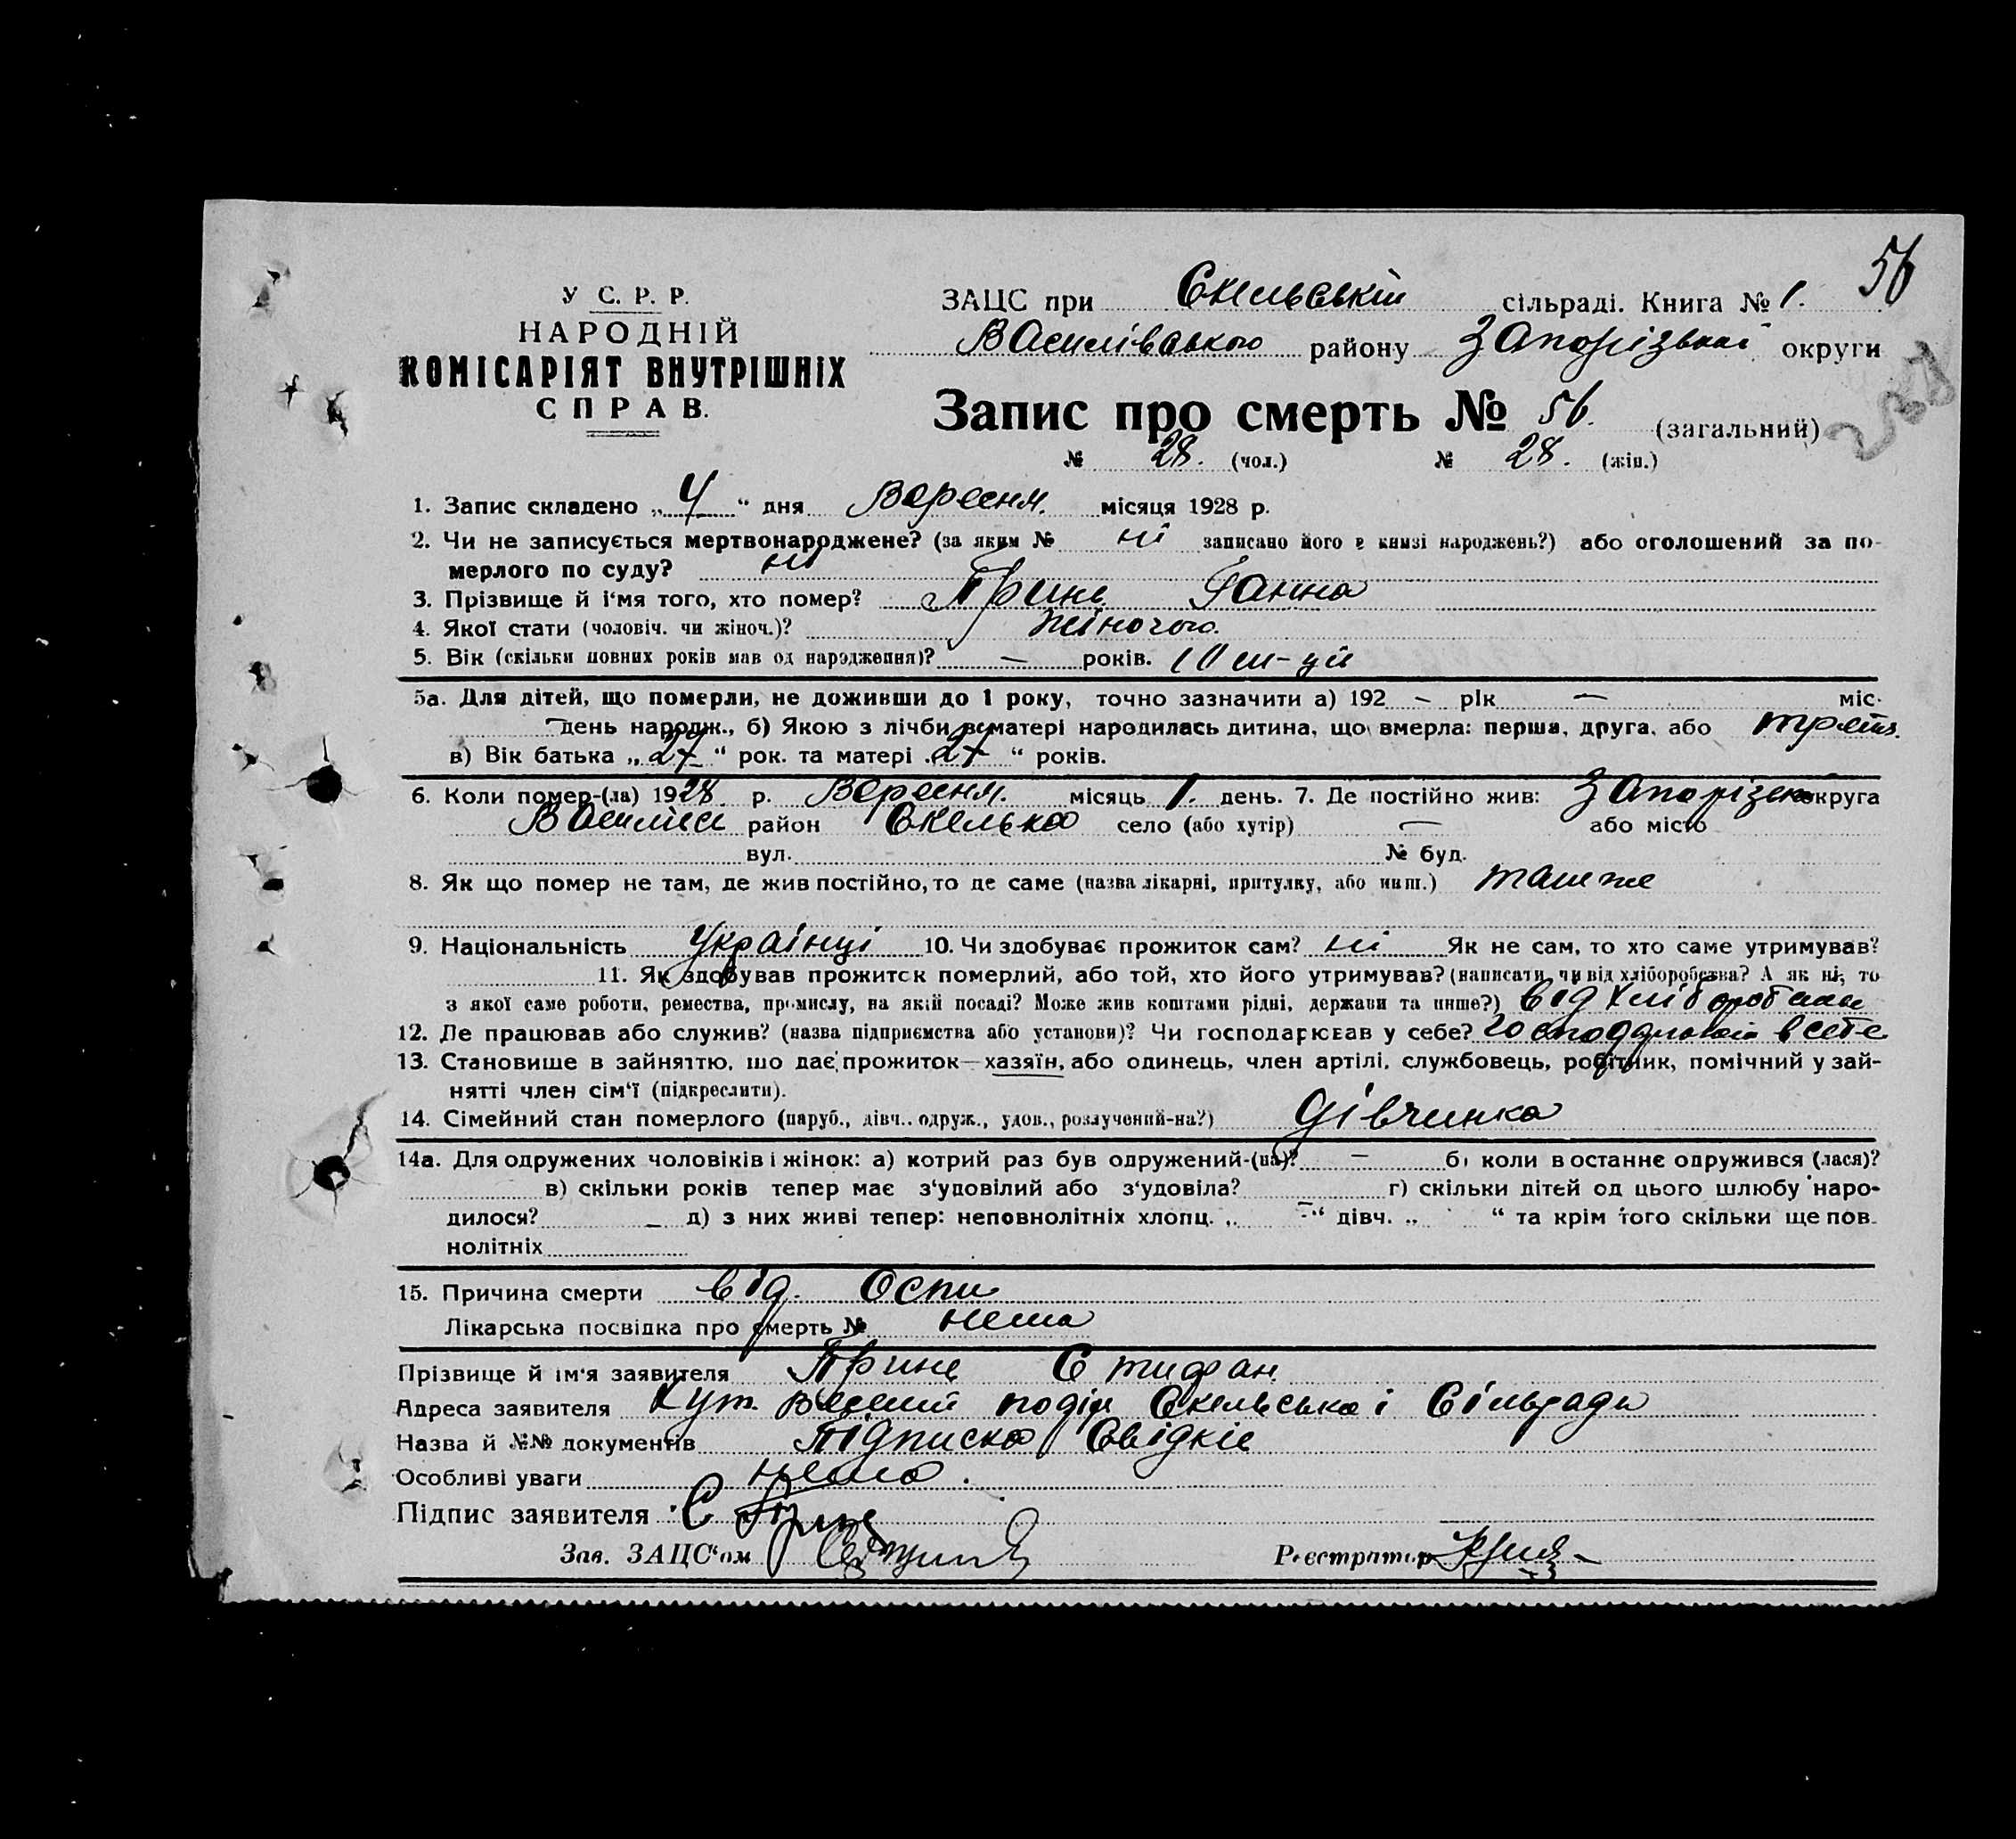 56
У С. Р. Р.
НАРОДНІЙ
КОМІСАРІЯТ ВНУТРІШНІХ
СПРАВ.
ЗАЦС при Скельській сільраді. Книга № 1.
Василівського району Запорізької округи
Запис про смерть № 56. (загальний)
№ 28. (чол.) № 28. (жін.)
1. Запис складено „ 4 “ дня Вересня. місяця 1928 р.
2. Чи не записується мертвонароджене? (за яким № ні записано його в книзі народжень?) або оголошений за по-
мерлого по суду? ні
3. Прізвище й і‘мя того, хто помер? Гринь Ганна
4. Якої стати (чоловіч. чи жіноч.)? жіночого.
5. Вік (скільки повних років мав од народження)? — років. 10 м-ців
5а. Для дітей, що померли, не доживши до 1 року, точно зазначити а) 192 – рік — міс.
— день народж., б) Якою з лічби в матері народилась дитина, що вмерла: перша, друга, або третя.
в) Вік батька „ 27 “ рок. та матері „ 27 “ років.
6. Коли помер-(ла) 1928 р. Вересня. місяць 1. день. 7. Де постійно жив: Запорізька округа
район Скелька село (або хутір) — або місто
вул. № буд.
8. Як що помер не там, де жив постійно, то де саме (назва лікарні, притулку, або инш.) там же
9. Національність Українці 10. Чи здобуває прожиток сам? ні Як не сам, то хто саме утримував?
11. Як здобував прожиток померлий, або той, хто його утримував? (написати, чи від хліборобства? А як ні, то
з якої саме роботи, ремества, промислу, на якій посаді? Може жив коштами рідні, держави та инше?) від
12. Де працював або служив? (назва підприємства або установи)? Чи господарював у себе? в себе
13. Становище в зайняттю, що дає прожиток—хазяїн, або одинець, член артілі, службовець, робітник, помічний у зай-
нятті член сім‘ї (підкреслити).
14. Сімейний стан померлого (паруб., дівч., одруж., удов., розлучений-на?) дівчинка
14а. Для одружених чоловіків і жінок: а) котрий раз був одружений-(на)? — б) коли востаннє одружився (лася)?
в) скільки років тепер має з‘удовілий або з‘удовіла? г) скільки дітей од цього шлюбу наро-
дилося? – д) з них живі тепер: неповнолітніх хлопц. „ – “ дівч. „ “ та крім того скільки ще пов.
нолітніх
15. Причина смерти від. Оспи
Лікарська посвідка про смерть № нема
Прізвище й ім‘я заявителя Гринь Стифан.
Адреса заявителя Хут. Скельської Сільради
Назва й №№ документів Підписка Свідків
Особливі уваги нема.
Підпис заявителя С Гринь
Зав. ЗАЦС‘ом Реєстратор